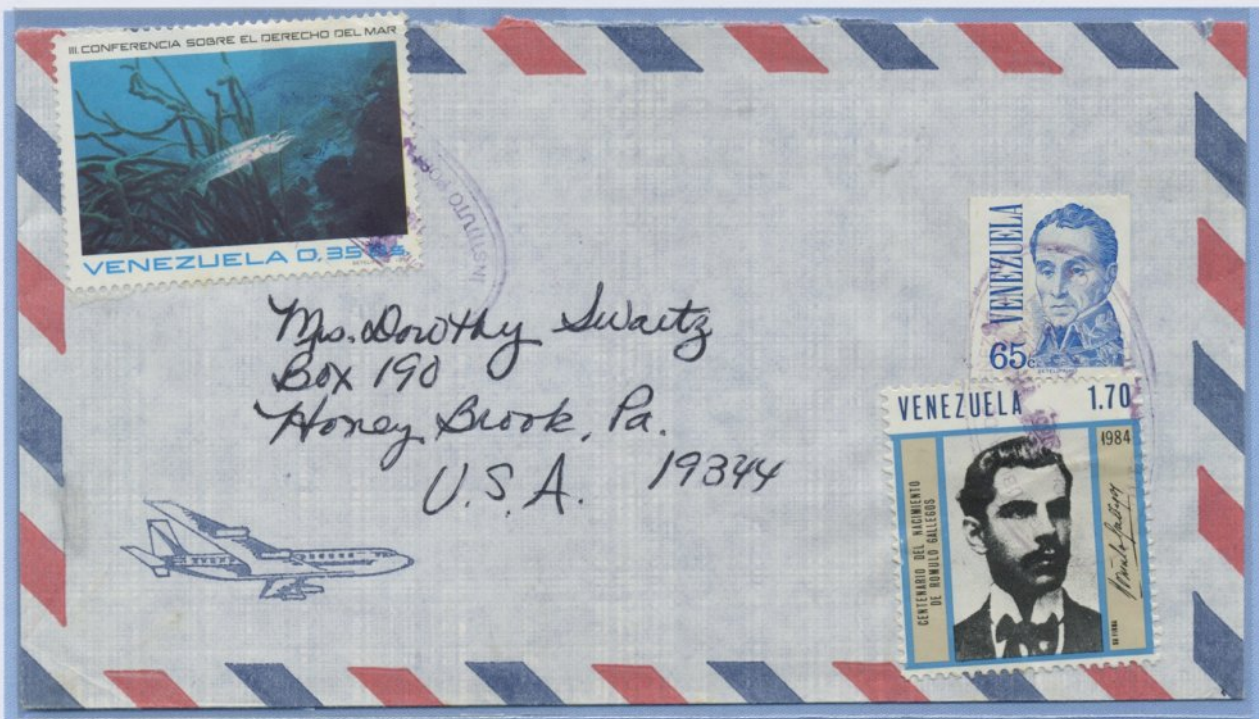 III. CONFERENCIA SOBRE EL DERECHO DEL MAR
VENEZUELA 0,35 Bs
INSTITUTO
Mrs. Dorothy Swartz
Box 190
Honey Brook, Pa.
U.S.A. 19344
VENEZUELA
65c
VENEZUELA 1.70
1984
CENTENARIO DEL NACIMIENTO
DE ROMULO GALLEGOS
Rómulo Gallegos